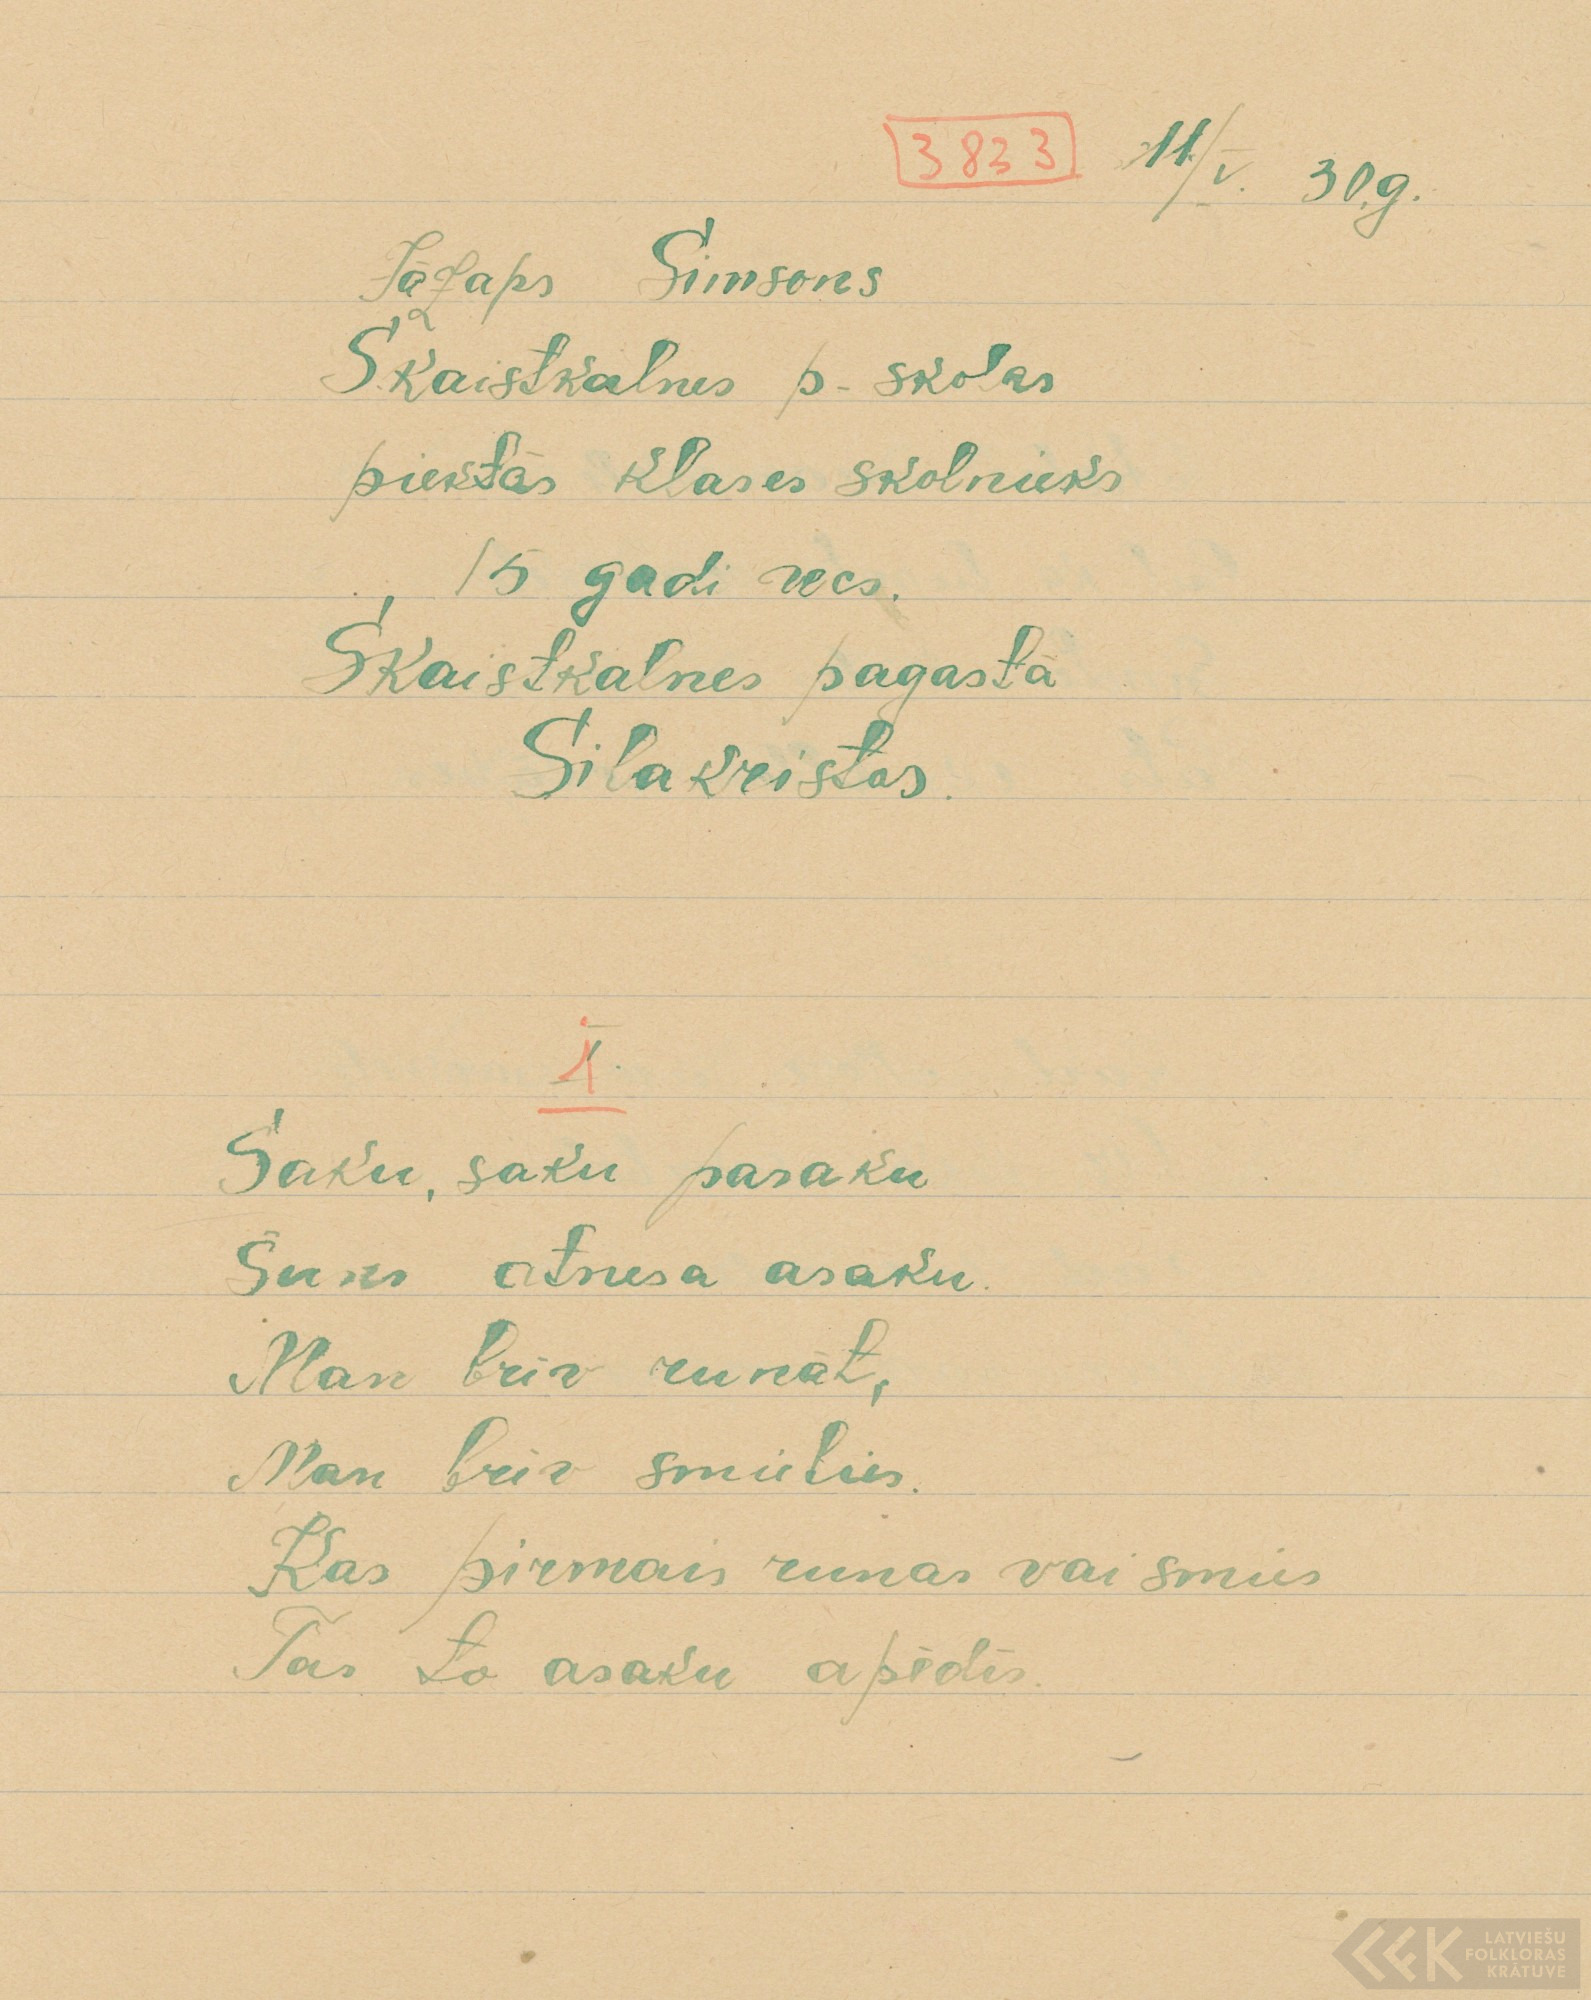 3833 11/V. 30.g.
Jāzaps Simsons
Skaistkalnes p. skolas
piektās klases skolnieks
15 gadi vecs.
Skaistkalnes pagastā
Silakristas.
1.
Saku, saku pasaku
Suns atnesa asaku.
Man brīv runāt,
Man brīv smieties.
Kas pirmais runas vai smies
Tas to asaku apēdīs.
LATVIEŠU
FOLKLORAS
KRĀTUVE